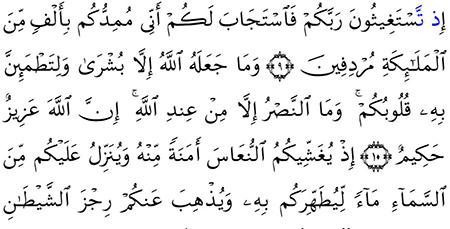 إِذ تَّسْتَغِيثُونَ رَبَّكُمْ فَٱسْتَجَابَ لَكُمْ أَنِّى مُمِدُّكُم بِأَلْفٍ مِّنَ
ٱلْمَلَـٰٓئِكَةِ مُرْدِفِينَ ﴿٩﴾ وَمَا جَعَلَهُ ٱللَّهُ إِلَّا بُشْرَىٰ وَلِتَطْمَئِنَّ
بِهِۦ قُلُوبُكُمْ ۚ وَمَا ٱلنَّصْرُ إِلَّا مِنْ عِندِ ٱللَّهِ ۚ إِنَّ ٱللَّهَ عَزِيزٌ
حَكِيمٌ ﴿١٠﴾ إِذْ يُغَشِّيكُمُ ٱلنُّعَاسَ أَمَنَةً مِّنْهُ وَيُنَزِّلُ عَلَيْكُم مِّنَ
ٱلسَّمَآءِ مَآءً لِّيُطَهِّرَكُم بِهِۦ وَيُذْهِبَ عَنكُمْ رِجْزَ ٱلشَّيْطَـٰنِ